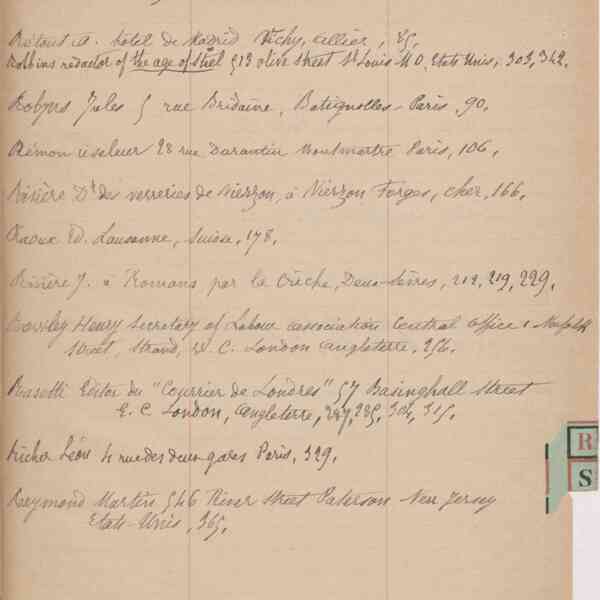 Retout A. hôtel de Madrid Vichy, Allier, 85,
Robbins rédactor of the age of Steel 513 olive street St Louis MO, Etats Unis, 303, 342,
Robyns Jules 5 rue Bridaine, Batignolles-Paris, 90,
Rémon ciseleur 28 rue Durantin Montmartre Paris, 106,
Rivière Dr des verreries de Vierzon, à Vierzon Forges, Cher, 166,
Raoux Ed. Lausanne, Suisse, 178,
Rivière J. à Romans par la Crèche, Deux-Sèvres, 212, 219, 229,
Henry Secretary of Labour association Central Office 1 Norfolk
Street, Strand, W. C. London Angleterre, 254,
Editor du "Courrier de Londres" 57 Basinghall Street
E. C. London, Angleterre, 285, 304, 315,
Richer Léon 4 rue des deux gares Paris, 329,
Reymond Martin 546 River Street Paterson New Jersey
Etats-Unis, 365,
R
S